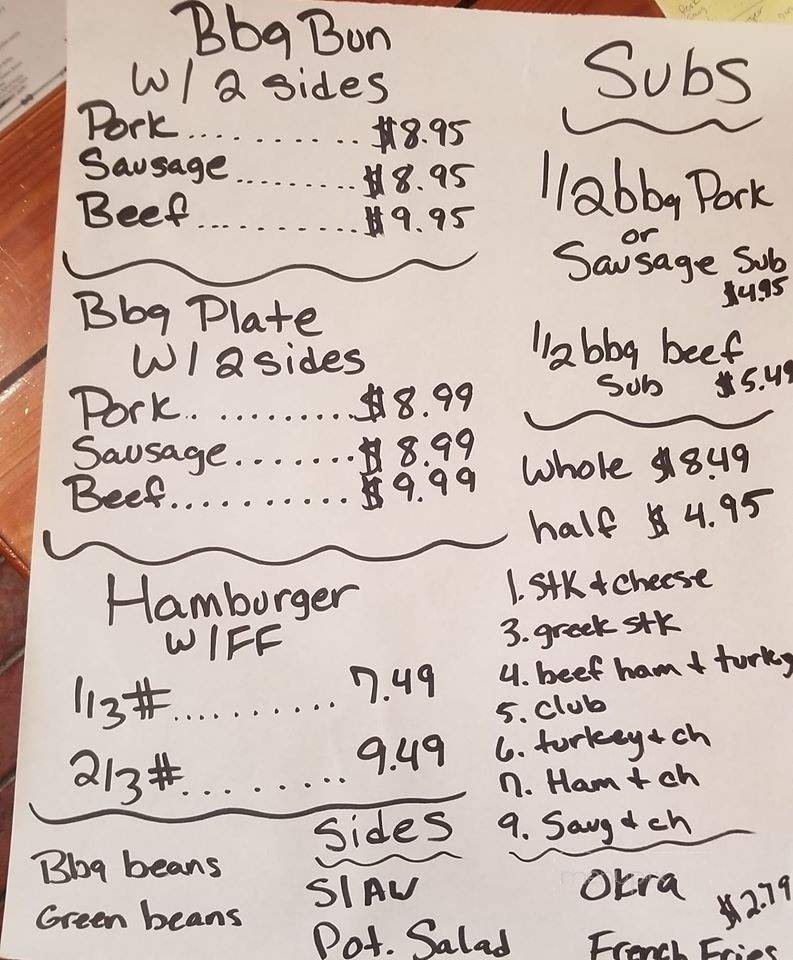 Bbq Bun
W/ 2 sides
Pork............ $8.95
Sausage............ $8.95
Beef............ $9.95
Bbq Plate
W/ 2 sides
Pork............ $8.99
Sausage........ $8.99
Beef............ $9.99
Hamburger
W/FF
1/3#............ 7.49
2/3#......... 9.49
Subs
1/2 bbq Pork
or
Sausage Sub
$4.95
1/2 bbq beef
Sub $5.49
whole $8.49
half $4.95
1. stk + cheese
3. greek stk
4. beef ham + turky
5. club
6. turkey + ch
7. Ham + ch
9. Saug + ch
Sides
Bbq beans
Green beans
Slaw
Pot. Salad
Okra
$2.79
French Fries